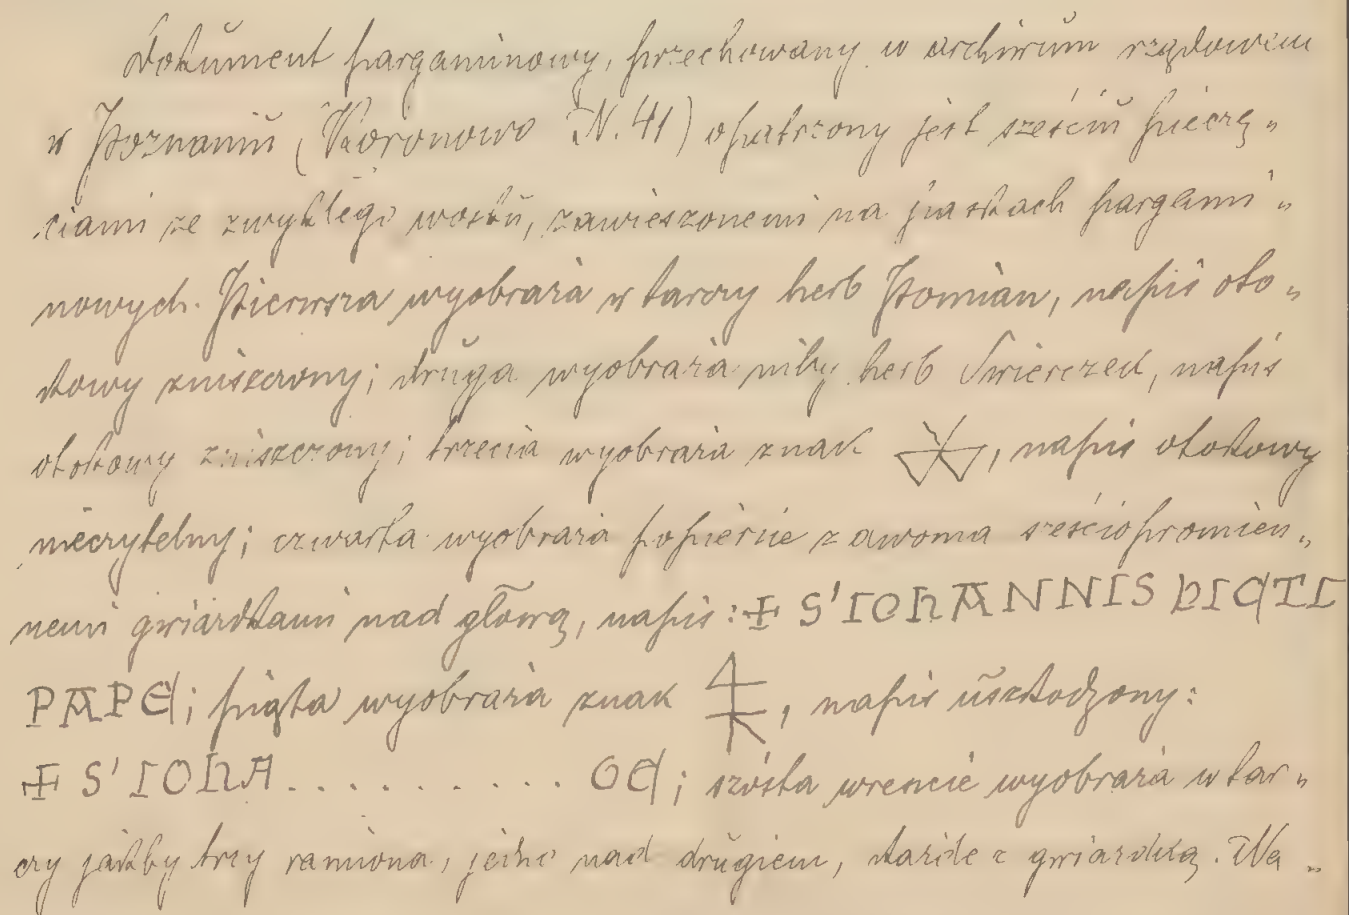 Dokument pargaminowy, przechowany w archiwum rządowem
w Poznaniu (Koronowo N. 41) opatrzony jest sześciu pieczę„
ciami ze zwykłego wosku, zawieszonemi na paskach pargami„
nowych. Pierwsza wyobraża w tarczy herb Pomian, napis oto„
kowy zniszczony; druga wyobraża niby herb Świerczek, napis
otokowy zniszczony; trzecia wyobraża znak , napis otokowy
nieczytelny; czwarta wyobraża popiersie z dwoma sześciopromien„
nemi gwiazdkami nad głową, napis: ✠ S' IOHANNIS DICTI
PAPE; piąta wyobraża znak , napis uszkodzony:
✠ S' IOHA . . . . . . . . . . GE; szósta wreszcie wyobraża w tar„
czy jakby trzy ramiona, jedno nad drugiem, każde z gwiazdką. Na„